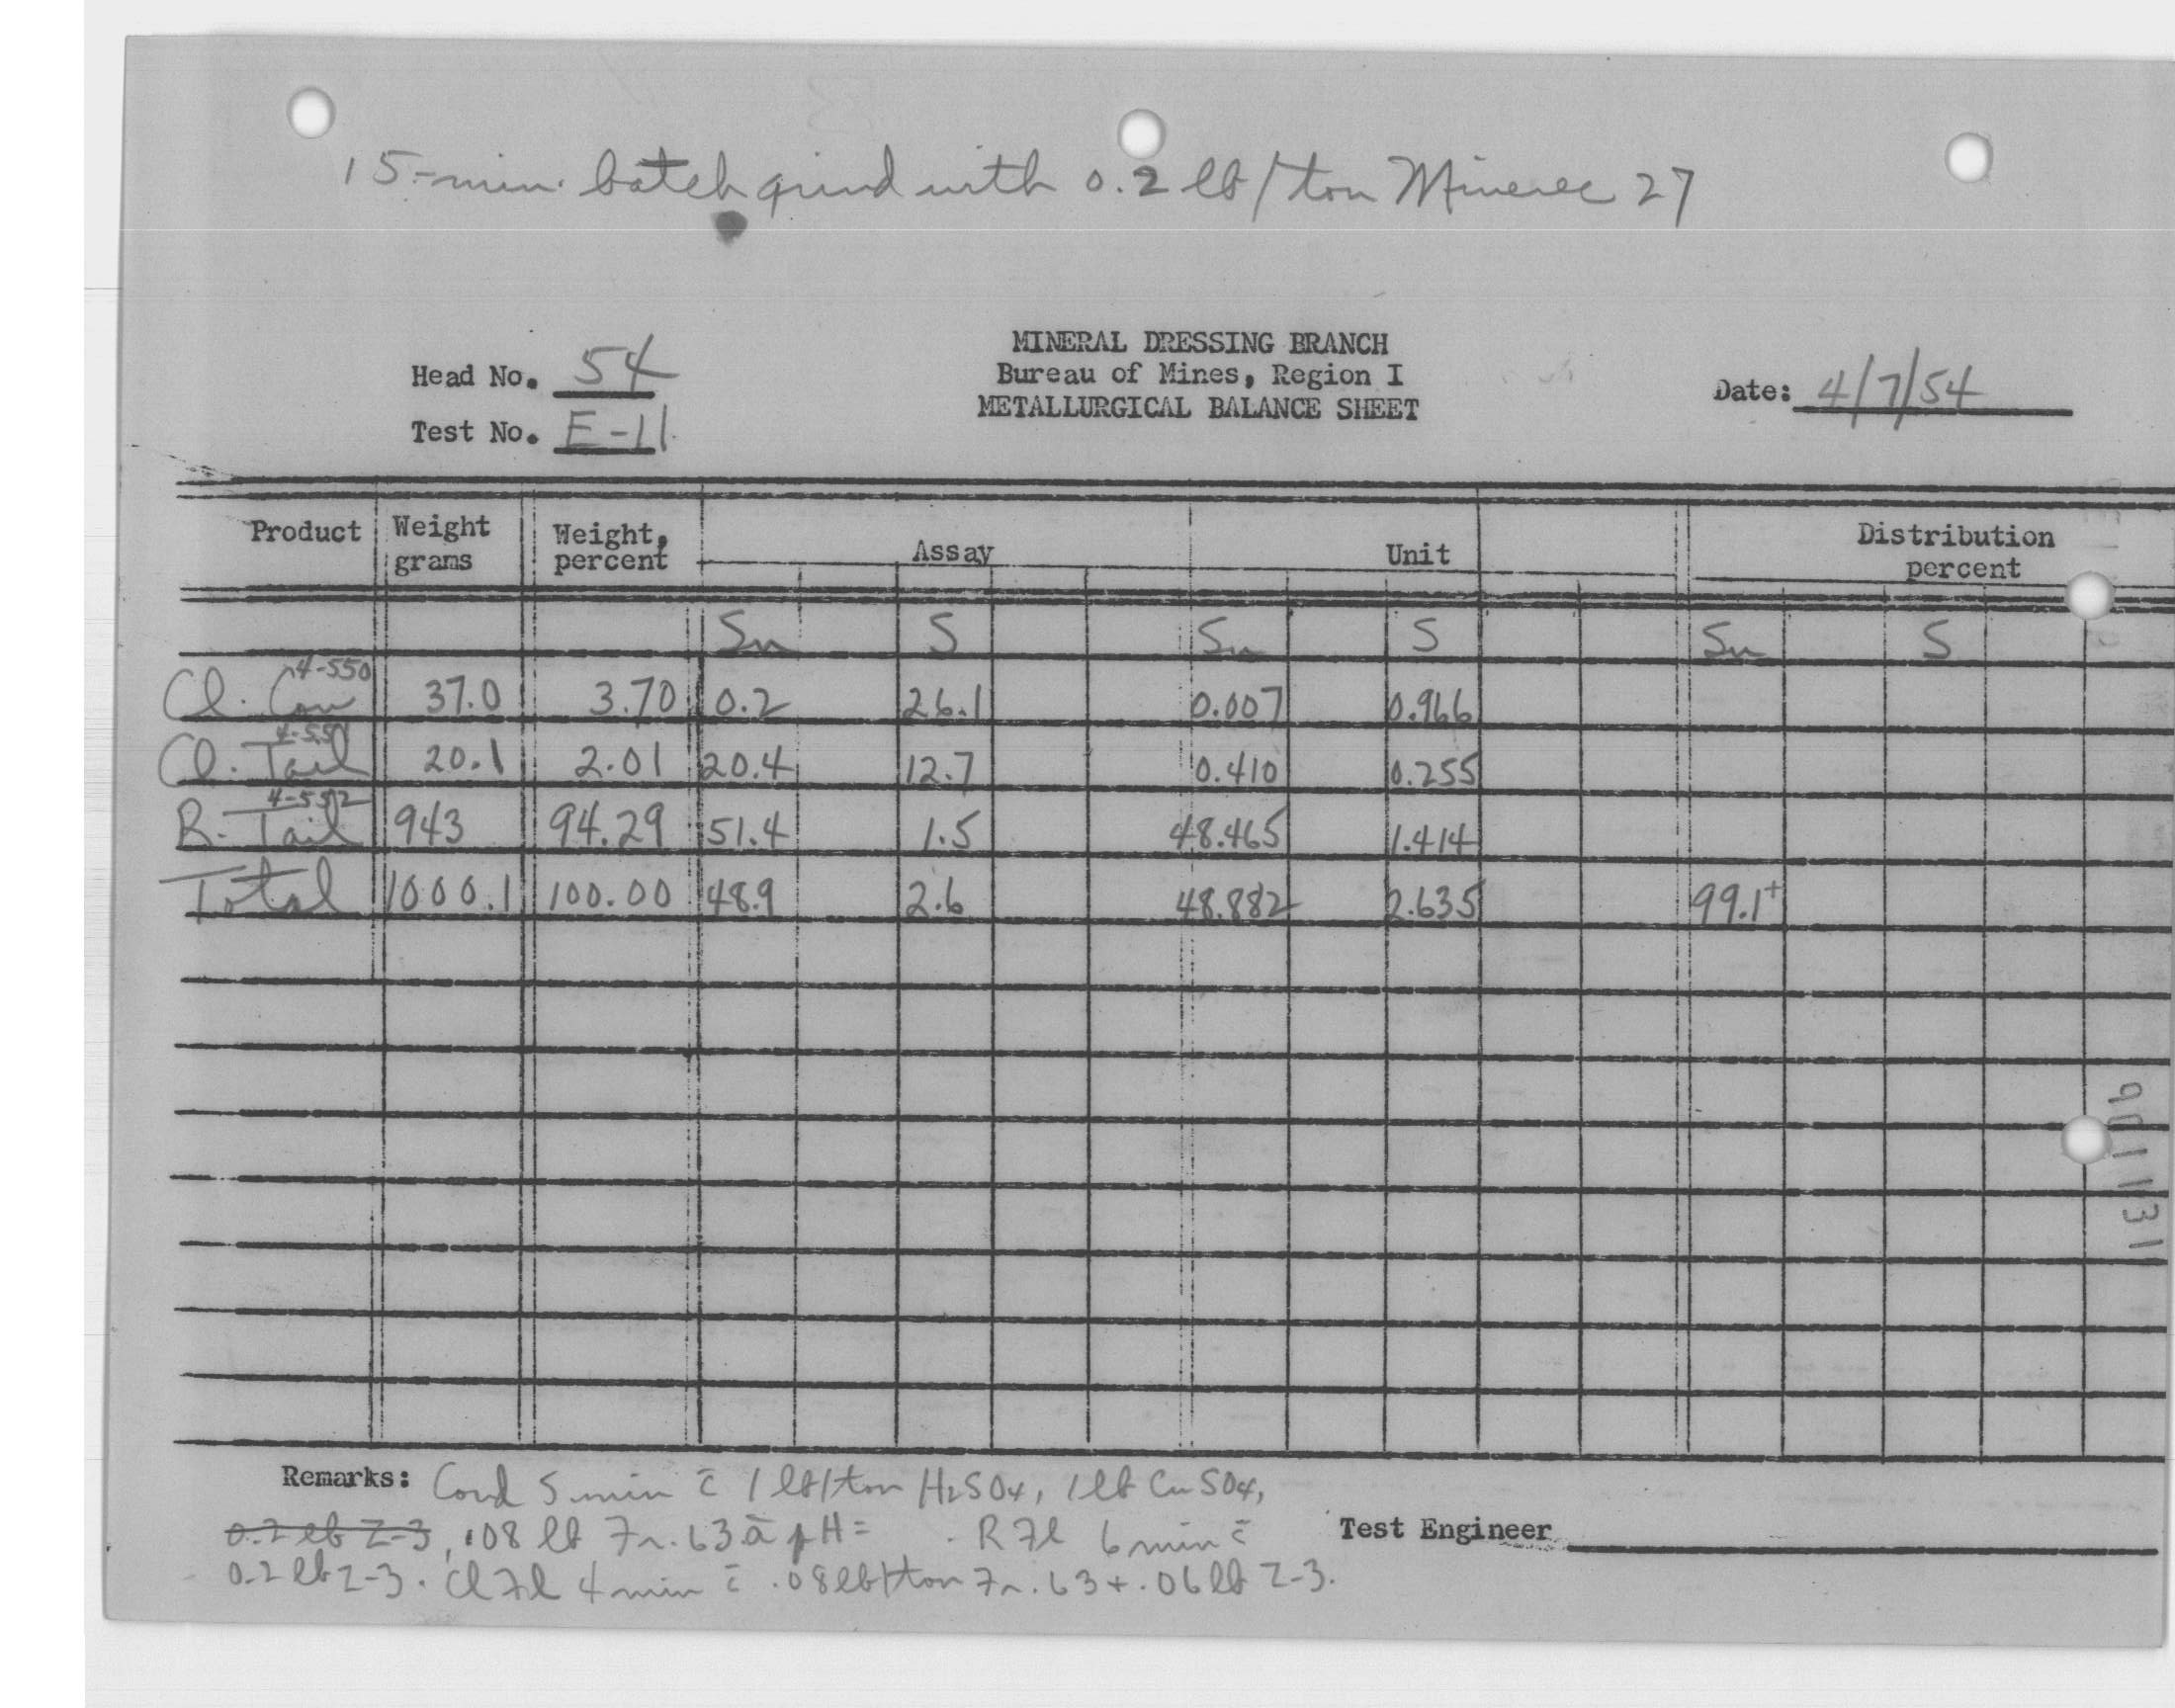 15-min. batch grind with 0.2 lb/ton Minerec 27
MINERAL DRESSING BRANCH
Bureau of Mines, Region I
METALLURGICAL BALANCE SHEET
Head No. 54
Test No. E-11
Date: 4/7/54
Product Weight grams Weight, percent Assay Unit Distribution percent
Sn S Sn S Sn S
4-550
Cl. Con 37.0 3.70 0.2 26.1 0.007 0.966
4-551
Cl. Tail 20.1 2.01 20.4 12.7 0.410 0.255
4-552
R. Tail 943 94.29 51.4 1.5 48.465 1.414
Total 1000.1 100.00 48.9 2.6 48.882 2.635 99.1+
Remarks: Cond 5 min c̄ 1 lb/ton H2SO4, 1 lb CuSO4,
0.2 lb Z-3, .08 lb Fr. 63 ā pH= . R Fl 6 min c̄
Test Engineer
0.2 lb Z-3. Cl Fl 4 min c̄ .08 lb/ton Fr. 63 + .06 lb Z-3.